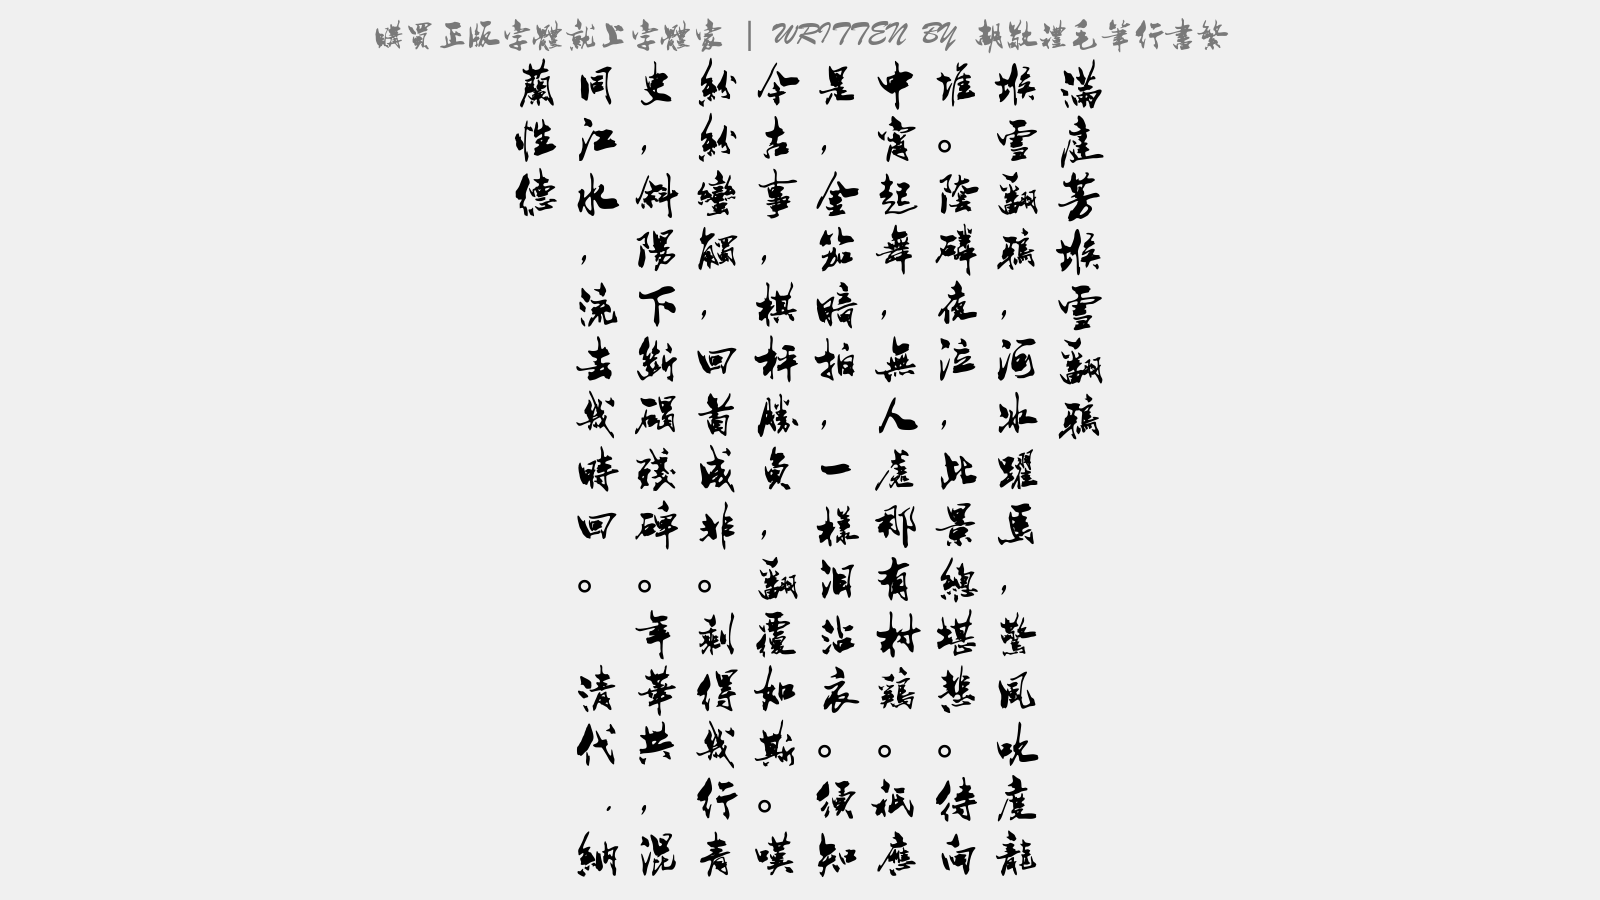 購買正版字體就上字體家 | WRITTEN BY 胡敬禮毛筆行書繁
滿庭芳堠雪翻鴉
堠雪翻鴉，河冰躍馬，驚風吹度龍
堆。陰磷夜泣，此景總堪悲。待向
中宵起舞，無人處那有村鷄。祇應
是，金笳暗拍，一樣泪沾衣。須知
今古事，棋枰勝負，翻覆如斯。嘆
紛紛蠻觸，回首成非。剩得幾行青
史，斜陽下斷碣殘碑。年華共，混
同江水，流去幾時回。 清代.納
蘭性德